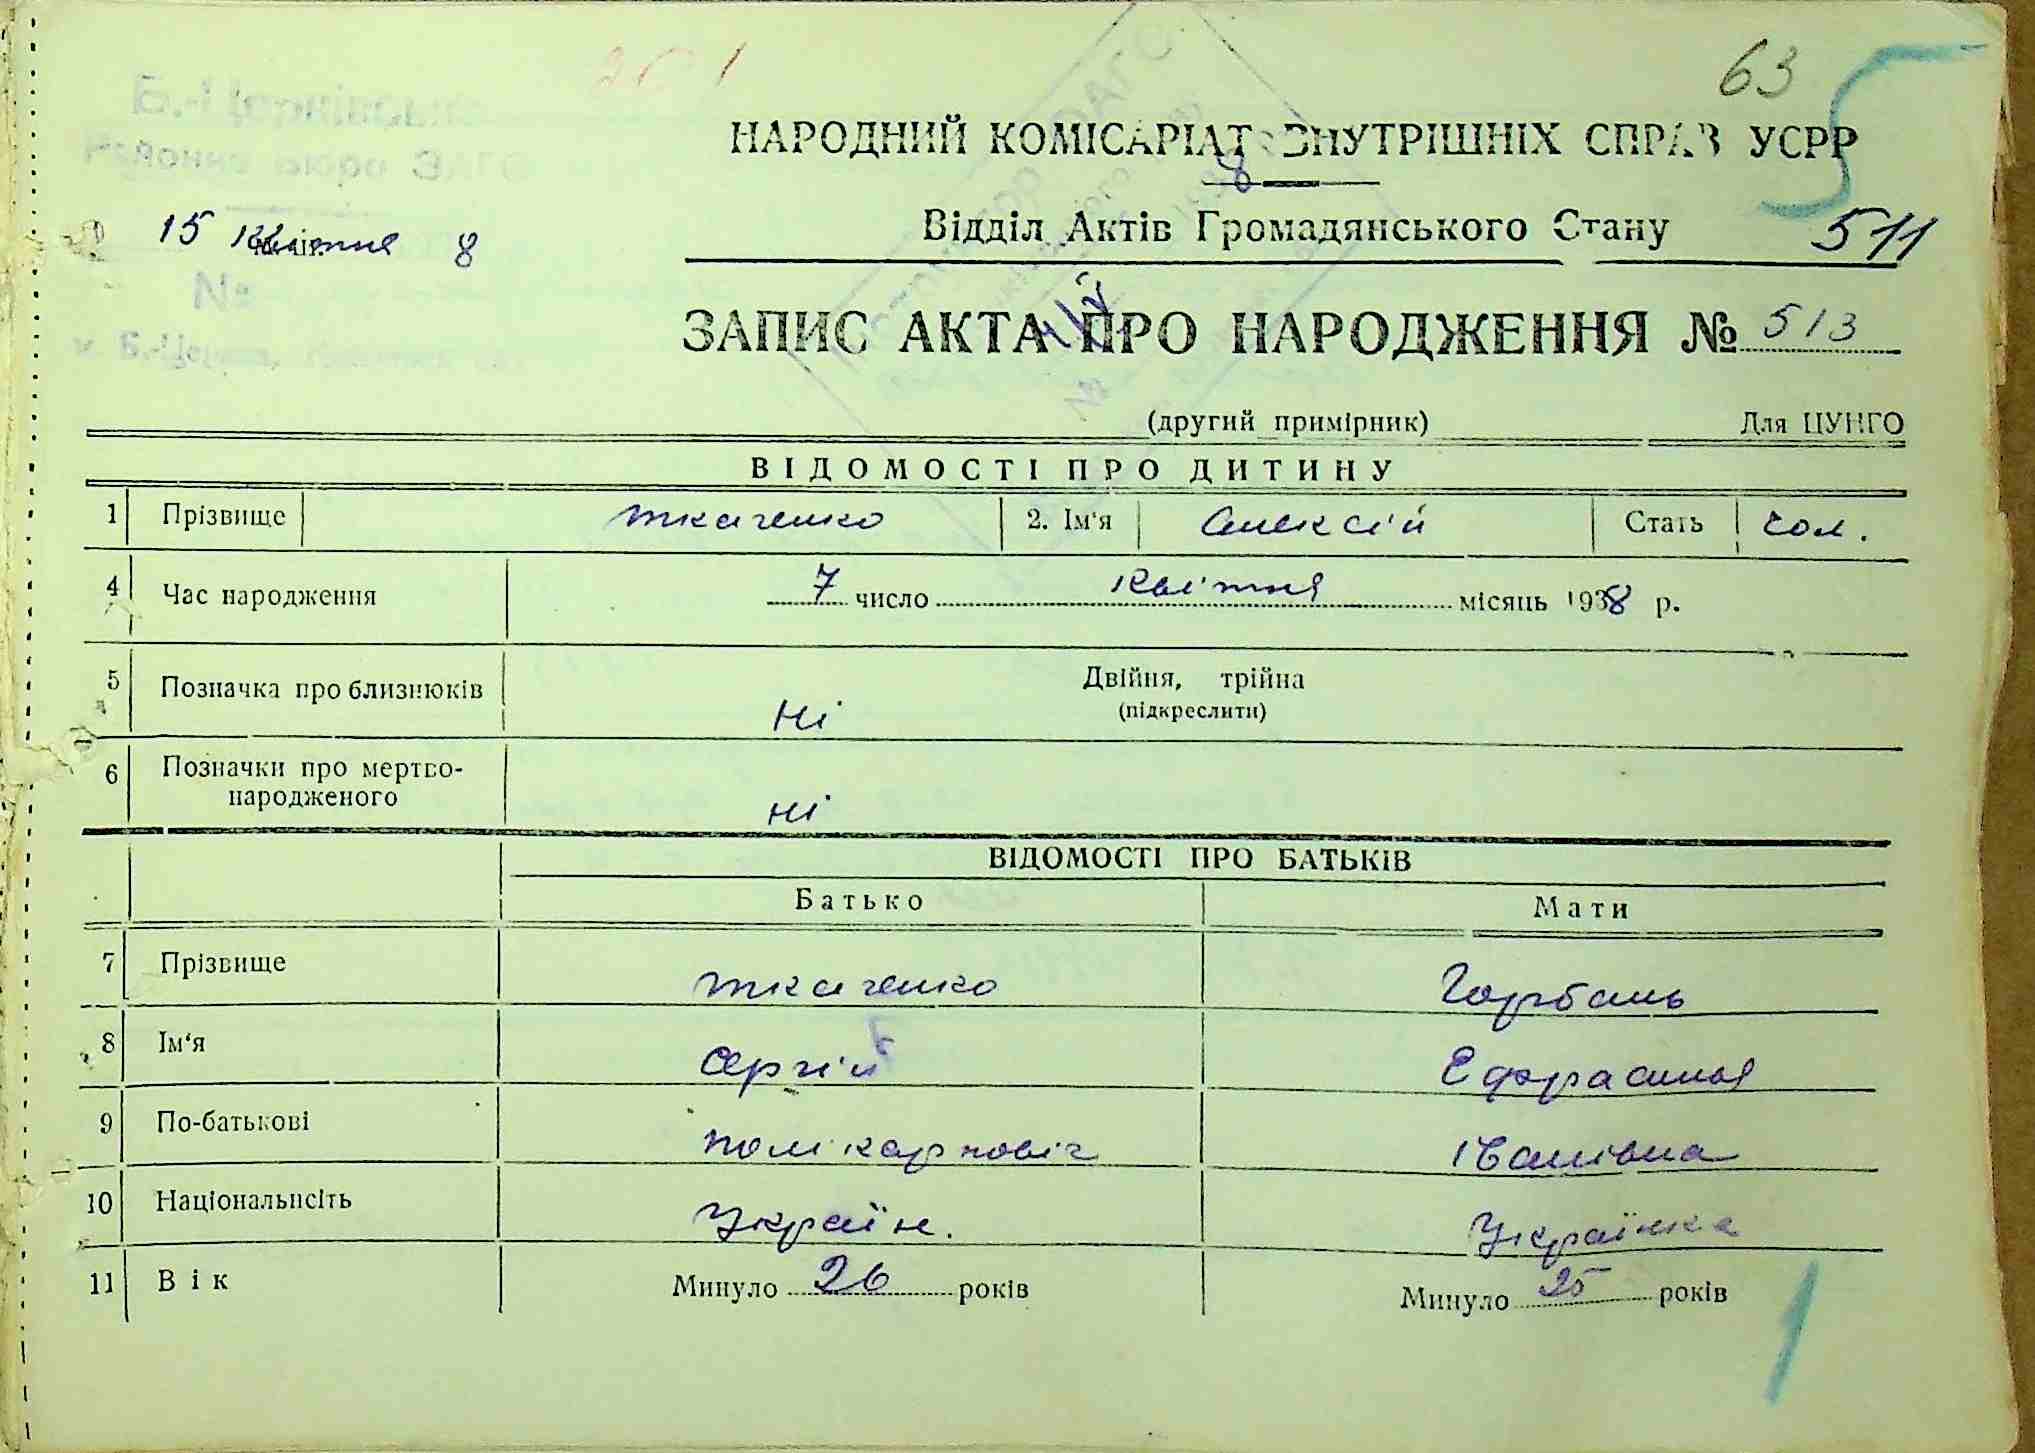 261
63
5
Б.-Церківське
Районне Бюро ЗАГС
НАРОДНИЙ КОМІСАРІАТ ВНУТРІШНІХ СПРАВ УСРР
8
15 Квітня 8
Відділ Актів Громадянського Стану
511
№
м. Б.-Церква,
ЗАПИС АКТА ПРО НАРОДЖЕННЯ № 513
(другий примірник) Для ЦУНГО
ВІДОМОСТІ ПРО ДИТИНУ
1 Прізвище Ткаченко 2. Ім'я Олексій Стать чол.
4 Час народження 7 число Квітня місяць 1938 р.
5 Позначка про близнюків Ні Двійня, трійна
(підкреслити)
6 Позначки про мертво-
народженого ні
ВІДОМОСТІ ПРО БАТЬКІВ
Батько Мати
7 Прізвище Ткаченко Горбань
8 Ім'я Сергій Ефрасинья
9 По-батькові Полікарповіч Іванівна
10 Національнсіть Україн. Українка
11 Вік Минуло 26 років Минуло 25 років
1